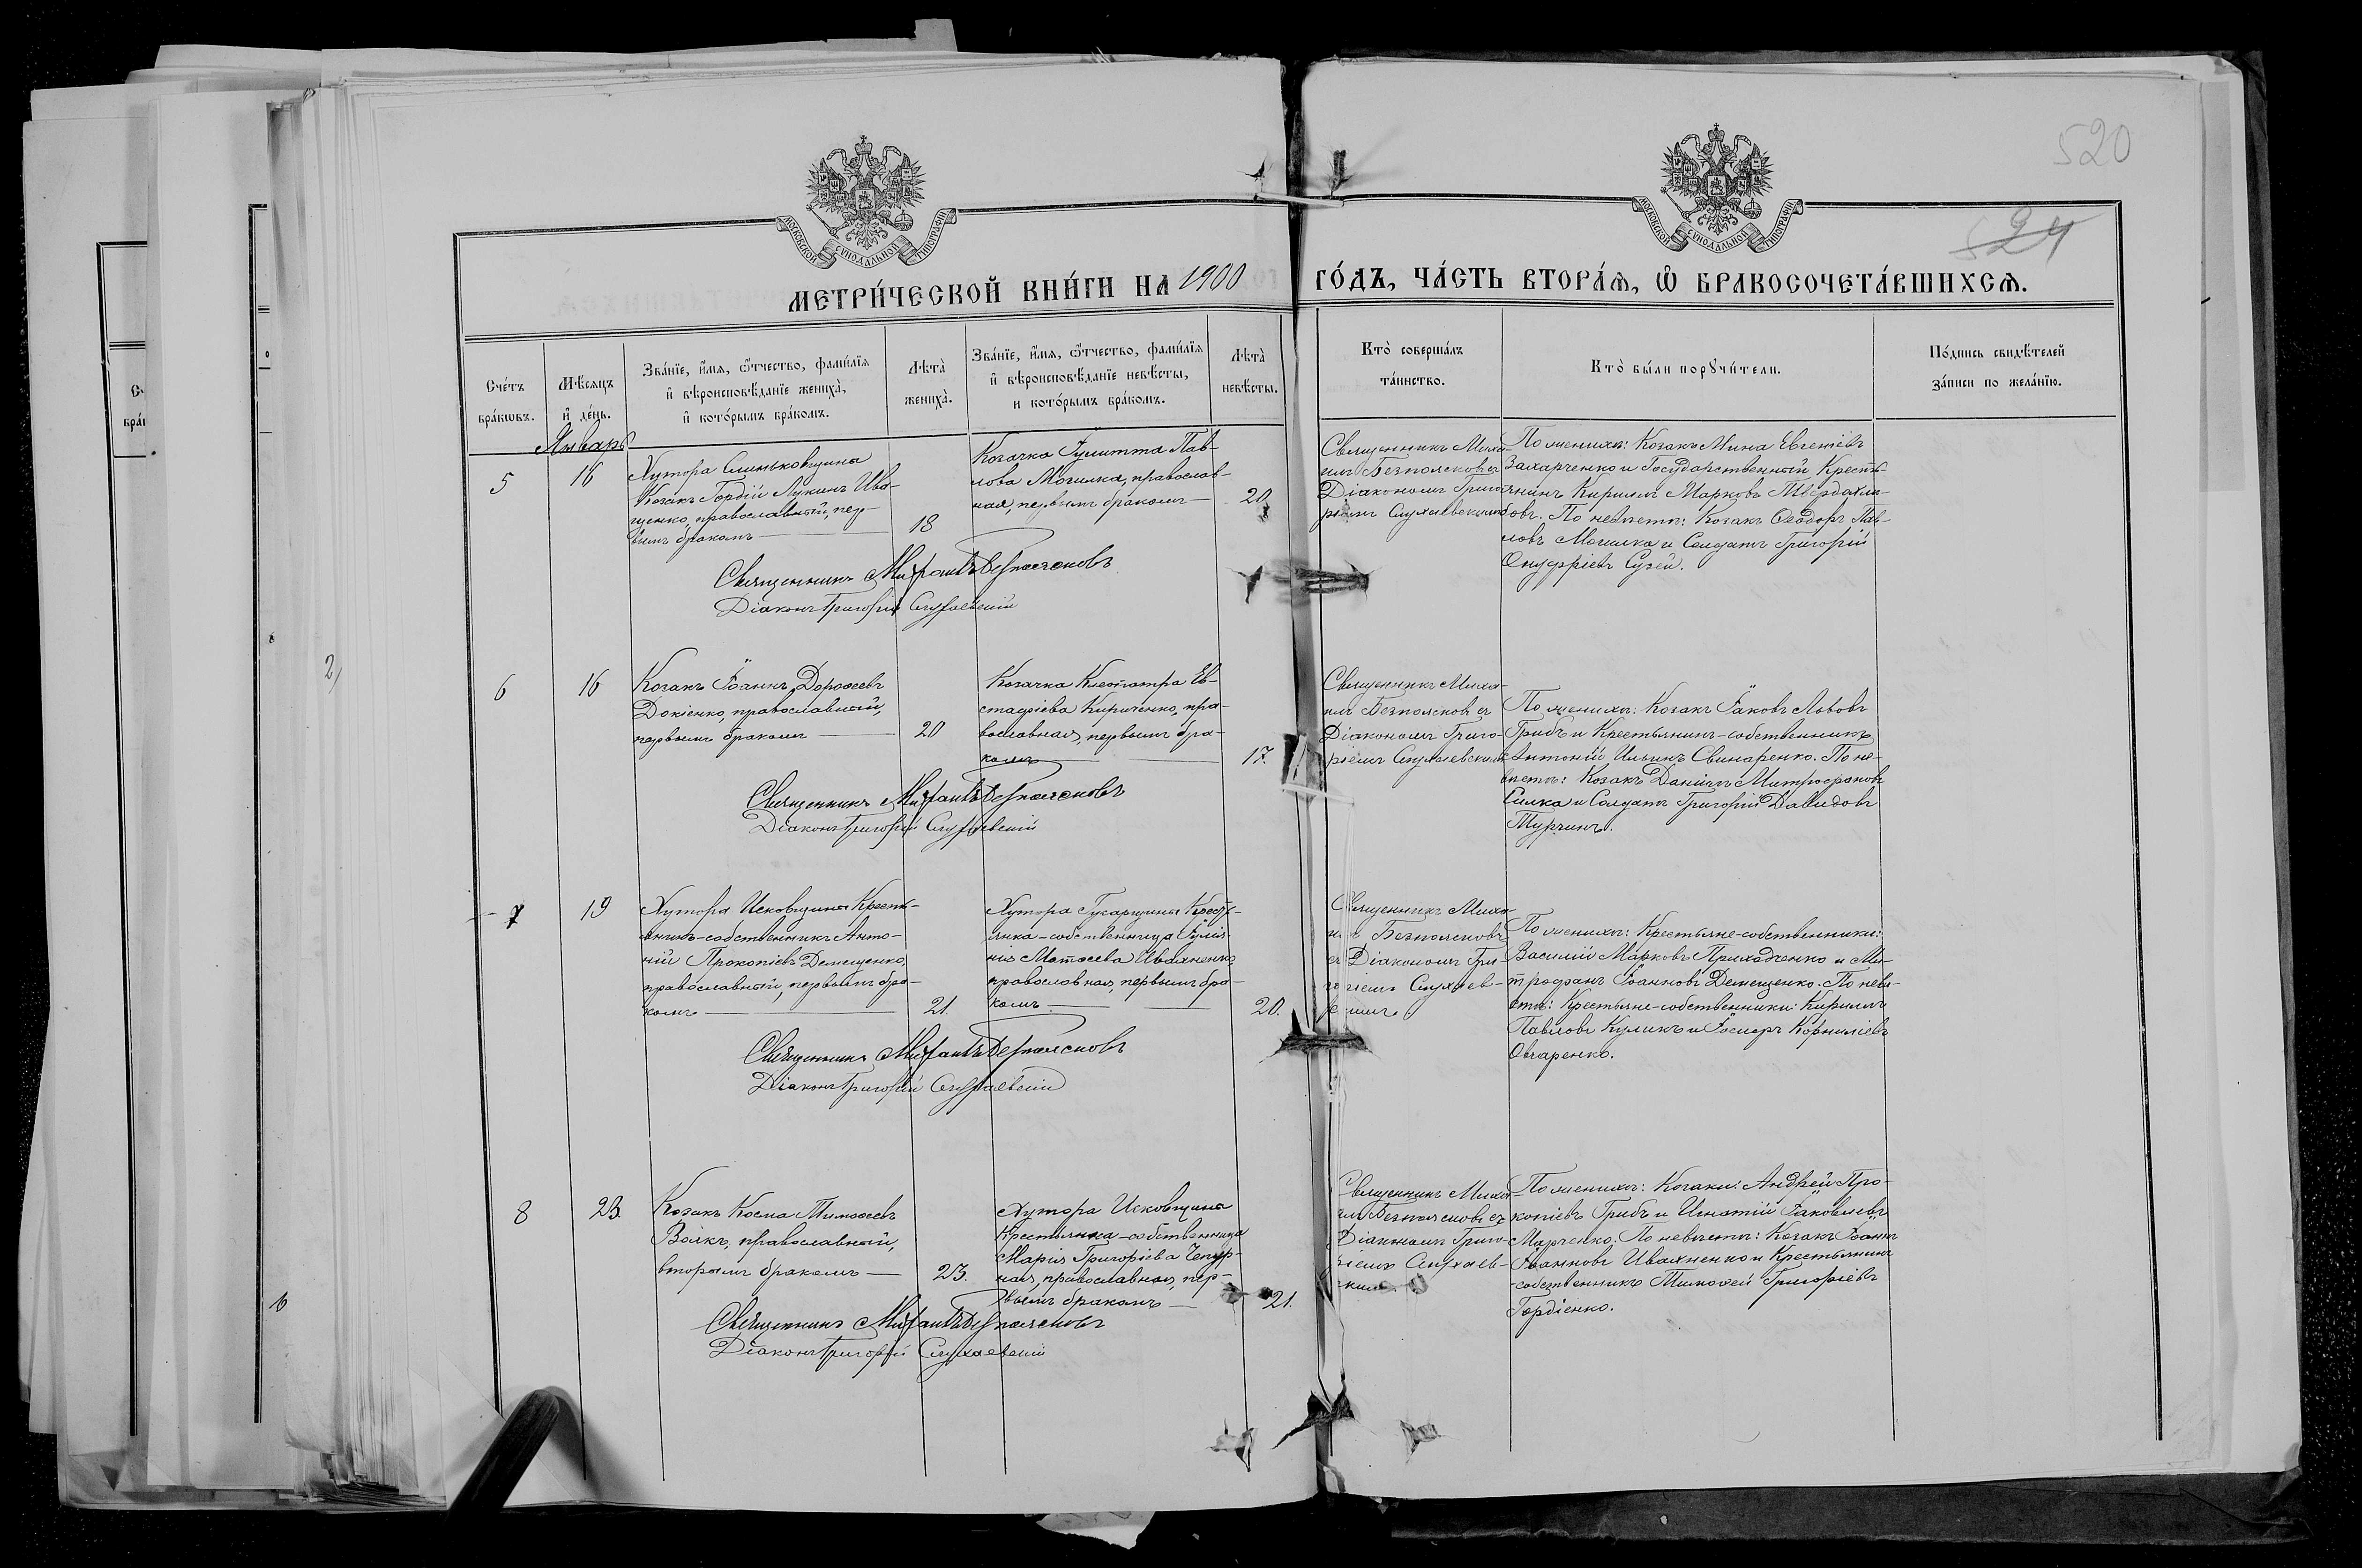 520
524
МОСКОВСКОЙ СѴНОДАЛЬНОЙ ТИПОГРАФІИ
МОСКОВСКОЙ СѴНОДАЛЬНОЙ ТИПОГРАФІИ
МЕТРИ́ЧЕСКОЙ КНИ́ГИ НА 1900 ГО́ДЪ, ЧА́СТЬ ВТОРА́Ѧ, Ѽ БРАКОСОЧЕТА́ВШИХСѦ.
Сче́тъ
бра́кѡвъ.
Мѣ́сяцъ
и҆ де́нь.
Зва́нїе, и҆́мя, ѻ҆́тчество, фами́лїя
и҆ вѣроисповѣ́данїе жениха̀,
и҆ кото́рымъ бра́комъ.
Лѣ́та̀
жениха̀.
Зва́нїе, и҆́мя, ѻ҆́тчество, фами́лїя
и҆ вѣроисповѣ́данїе невѣ́сты,
и кото́рымъ бра́комъ.
Лѣ́та̀
невѣ́сты.
Кто̀ соверша́лъ
та́инство.
Кто̀ бы́ли порꙋчи́тели.
По́дпись свидѣ́телей
за́писи по жела́нїю.
Январь
5
16
Хутора Слиньковщина
Козакъ Гордій Лукинъ Ива-
щенко, православный, пер-
вымъ бракомъ
18
Козачка Іулитта Пав-
лова Могилка, православ-
ная, первымъ бракомъ
20
Священникъ Миха-
илъ Безпоясковъ съ
Діакономъ Григо-
ріемъ Слухаевскимъ
По женихѣ: Козакъ Мина Евгеніевъ
Захарченко и Государственный Крестья-
нинъ Кириллъ Марковъ Твердохлѣ-
бовъ. По невѣстѣ: Козакъ Ѳеодоръ Пав-
ловъ Могилка и Солдатъ Григорій
Онуфріевъ Сузей.
Священникъ Михаилъ Безпоясковъ
Діаконъ Григорій Слухаевскій
6
16
Козакъ Іоаннъ Дороѳеевъ
Докіенко, православный,
первымъ бракомъ
20
Козачка Клеопатра Ев-
стафіева Кириченко, пра-
вославная, первымъ бра-
комъ
17.
Священникъ Миха-
илъ Безпоясковъ съ
Діакономъ Григо-
ріемъ Слухаевскимъ
По женихѣ: Козакъ Іаковъ Львовъ
Грибъ и Крестьянинъ-собственникъ
Антоній Ильинъ Свинаренко. По не-
вѣстѣ: Козакъ Даніилъ Митрофановъ
Силка и Солдатъ Григорій Давидовъ
Турчинъ.
Священникъ Михаилъ Безпоясковъ
Діаконъ Григорій Слухаевскій
7
19
Хутора Исковщина Крестья-
нинъ-собственникъ Анто-
ній Прокопіевъ Демещенко,
православный, первымъ бра-
комъ
21.
Хутора Гусарщина Кресть-
янка-собственница Іуліа-
нія Матѳеева Ивахненко,
православная, первымъ бра-
комъ
20.
Священникъ Миха-
илъ Безпоясковъ
съ Діакономъ Гри-
горіемъ Слухаев-
скимъ
По женихѣ: Крестьяне-собственники:
Василій Марковъ Приходченко и Ми-
трофанъ Іоанновъ Демещенко. По невѣ-
стѣ: Крестьяне-собственники: Кириллъ
Павловъ Куликъ и Іосифъ Корниліевъ
Овчаренко.
Священникъ Михаилъ Безпоясковъ
Діаконъ Григорій Слухаевскій
8
23.
Козакъ Косма Тимоѳеевъ
Волкъ, православный,
вторымъ бракомъ
23.
Хутора Исковщина
Крестьянка-собственница
Марія Григоріева Чепур-
ная, православная, пер-
вымъ бракомъ
21.
Священникъ Миха-
илъ Безпоясковъ съ
Діакономъ Григо-
ріемъ Слухаев-
скимъ.
По женихѣ: Козаки: Андрей Про-
копіевъ Грибъ и Игнатій Іаковлевъ
Марченко. По невѣстѣ: Козакъ Іоаннъ
Іоанновъ Ивахненко и Крестьянинъ
-собственникъ Тимоѳей Григоріевъ
Гордіенко.
Священникъ Михаилъ Безпоясковъ
Діаконъ Григорій Слухаевскій